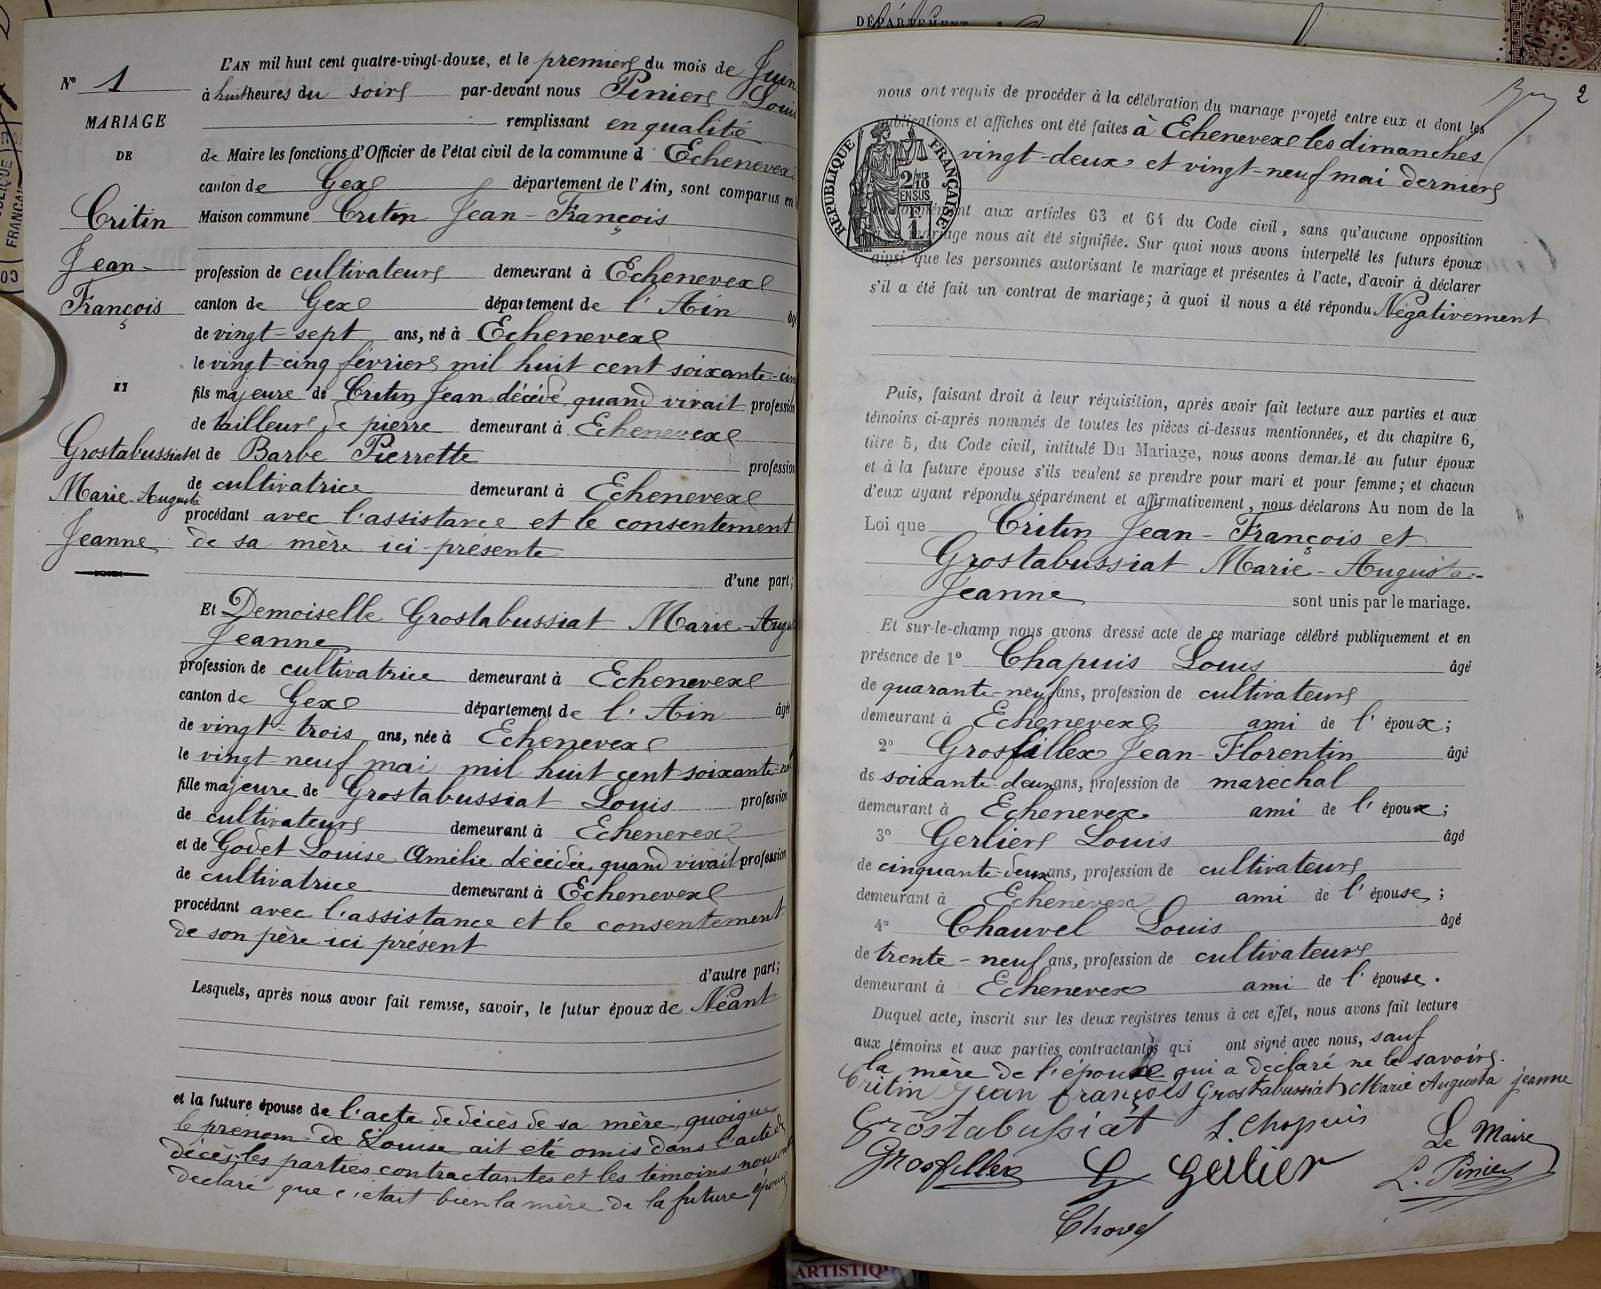 N° 1
MARIAGE
DE
Critin
Jean-
François
ET
Grostabussiat
Marie-Augusta
Jeanne
L'AN mil huit cent quatre-vingt-douze, et le premier du mois de Juin
à huit heures du soir par-devant nous Pinier Louis
remplissant en qualité
de Maire les fonctions d'Officier de l'état civil de la commune d'Echenevex
canton de Gex département de l'Ain, sont comparus en
Maison commune Critin Jean-François
profession de cultivateur demeurant à Echenevex
canton de Gex département de l'Ain âgé
de vingt-sept ans, né à Echenevex
le vingt-cinq février mil huit cent soixante-cinq
fils majeure de Critin Jean décédé quand vivait profession
de tailleur de pierre demeurant à Echenevex
et de Barbe Pierrette profession
de cultivatrice demeurant à Echenevex
procédant avec l'assistance et le consentement
de sa mère ici présente
d'une part;
Et Demoiselle Grostabussiat Marie-Augusta
Jeanne
profession de cultivatrice demeurant à Echenevex
canton de Gex département de l'Ain âgée
de vingt-trois ans, née à Echenevex
le vingt neuf mai mil huit cent soixante-
fille majeure de Grostabussiat Louis profession
de cultivateur demeurant à Echenevex
et de Godet Louise Amélie décédée, quand vivait profession
de cultivatrice demeurant à Echenevex
procédant avec l'assistance et le consentement
de son père ici présent
d'autre part;
Lesquels, après nous avoir fait remise, savoir, le futur époux de Néant
et la future épouse de l'acte de décès de sa mère, quoique
le prénom de Louise ait été omis dans l'acte de
décès, les parties contractantes et les témoins nous ont
déclaré que c'était bien la mère de la future épouse
DÉPARTEMENT
2
nous ont requis de procéder à la célébration du mariage projeté entre eux et dont les
publications et affiches ont été faites à Echenevex les dimanches
vingt-deux et vingt-neuf mai dernier
RÉPUBLIQUE FRANÇAISE
2/10 EN SUS
conformément aux articles 63 et 64 du Code civil, sans qu'aucune opposition
au mariage nous ait été signifiée. Sur quoi nous avons interpellé les futurs époux
ainsi que les personnes autorisant le mariage et présentes à l'acte, d'avoir à déclarer
s'il a été fait un contrat de mariage; à quoi il nous a été répondu Négativement
Puis, faisant droit à leur réquisition, après avoir fait lecture aux parties et aux
témoins ci-après nommés de toutes les pièces ci-dessus mentionnées, et du chapitre 6,
titre 5, du Code civil, intitulé Du Mariage, nous avons demandé au futur époux
et à la future épouse s'ils veulent se prendre pour mari et pour femme; et chacun
d'eux ayant répondu séparément et affirmativement, nous déclarons Au nom de la
Loi que Critin Jean-François et
Grostabussiat Marie-Augusta-
Jeanne sont unis par le mariage.
Et sur-le-champ nous avons dressé acte de ce mariage célébré publiquement et en
présence de 1° Chapuis Louis âgé
de quarante-neuf ans, profession de cultivateur
demeurant à Echenevex ami de l'époux;
2° Grosfillex Jean-Florentin âgé
de soixante-deux ans, profession de marechal
demeurant à Echenevex ami de l'époux;
3° Gerlier Louis âgé
de cinquante-deux ans, profession de cultivateur
demeurant à Echenevex ami de l'épouse;
4° Chauvel Louis âgé
de trente-neuf ans, profession de cultivateur
demeurant à Echenevex ami de l'épouse.
Duquel acte, inscrit sur les deux registres tenus à cet effet, nous avons fait lecture
aux témoins et aux parties contractantes qui ont signé avec nous, sauf
la mère de l'époux qui a déclaré ne le savoir.
Critin Jean françois Grostabussiat Marie Augusta jeanne
Grostabussiat L. Chapuis
Le Maire
Grosfillex G Gerlier L. Pinier
Chovel
ARTISTIQ